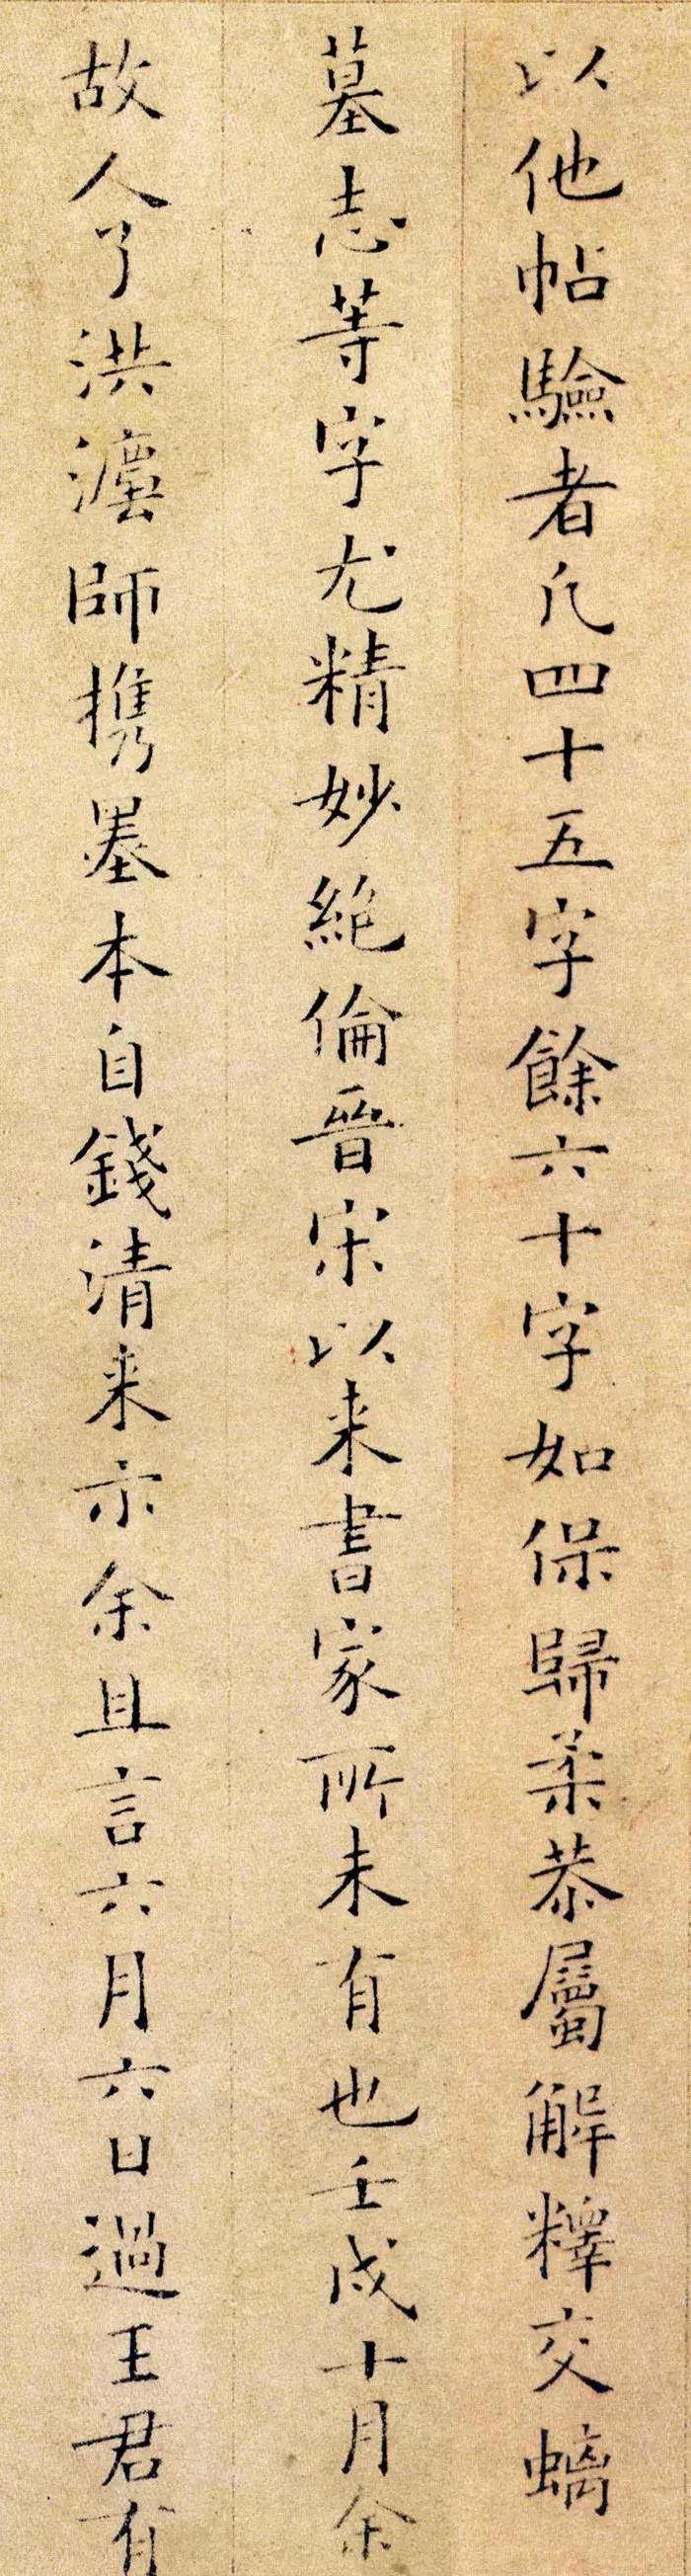 以他帖驗者凡四十五字餘六十字如保歸柔恭屬解釋交螭
墓志等字尤精妙絶倫晉宋以来書家所未有也壬戌十月余
故人了洪灋師携墨本自錢清来示余且言六月六日過王君有